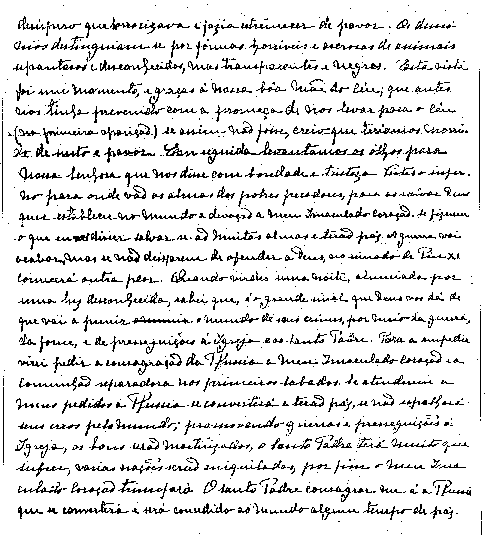 desespero que horrorizava e fazia estremecer de pavor. Os demo-
nios destinguiam-se por formas horriveis e ascrosas de animais
espantosos e desconhecidos, mas transparentes e negros. Esta vista
foi um momento, e graças à nossa bôa Mãe do Céu; que antes
nos tinha prevenido com a promeça de nos levar para o Céu
(na primeira aparição) se assim não fosse, creio que teriamos morri-
do de susto e pavor. Em seguida, levantámos os olhos para
Nossa Senhora que nos disse com bondade e tristeza: Vistes o infer-
no, para onde vão as almas dos pobres pecadores, para as salvar, Deus
quer establecer no mundo a devoção a meu Imaculado Coração. Se fizerem
o que eu disser salvar-se-ão muitas almas e terão paz. A guerra vai
acabar, mas se não deixarem de ofender a Deus, no reinado de Pio XI
começará outra peor. Quando virdes uma noite, alumiada por
uma luz desconhecida, sabei que é o grande sinal que Deus vos dá de
que vai a punir o mundo de seus crimes, por meio da guerra,
da fome, e de perseguições à Igreja e ao Santo Padre. Para a impedir
virei pedir a consagração da Russia a meu Imaculado Coração e a
comunhão reparadora nos primeiros sabados. Se atenderem a
meus pedidos a Russia se converterá e terão paz, se não espalhará
seus erros pelo mundo, promovendo guerras e perseguições á
Igreja, os bons serão martirizados, o Santo Padre terá muito que
sufrer, varias nações serão aniquiladas, por fim o meu Ima-
culado Coração triunfará. O Santo Padre consagrar-me-á a Russia
que se converterá e será concedido ao mundo algum tempo de paz.